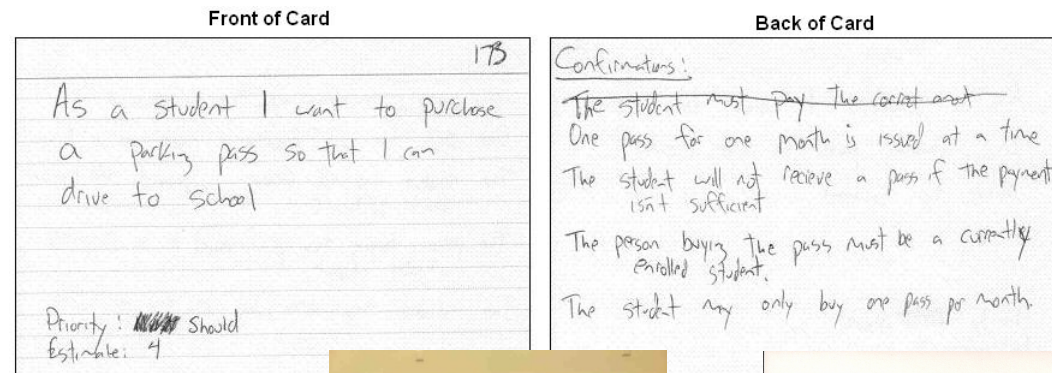 Front of Card
173
As a student I want to purchase
a parking pass so that I can
drive to school
Priority: Should
Estimate: 4
Back of Card
Confirmations:
The student must pay the correct amount
One pass for one month is issued at a time
The student will not recieve a pass if the payment
isn't sufficient
The person buying the pass must be a currently
enrolled student.
The student may only buy one pass per month.